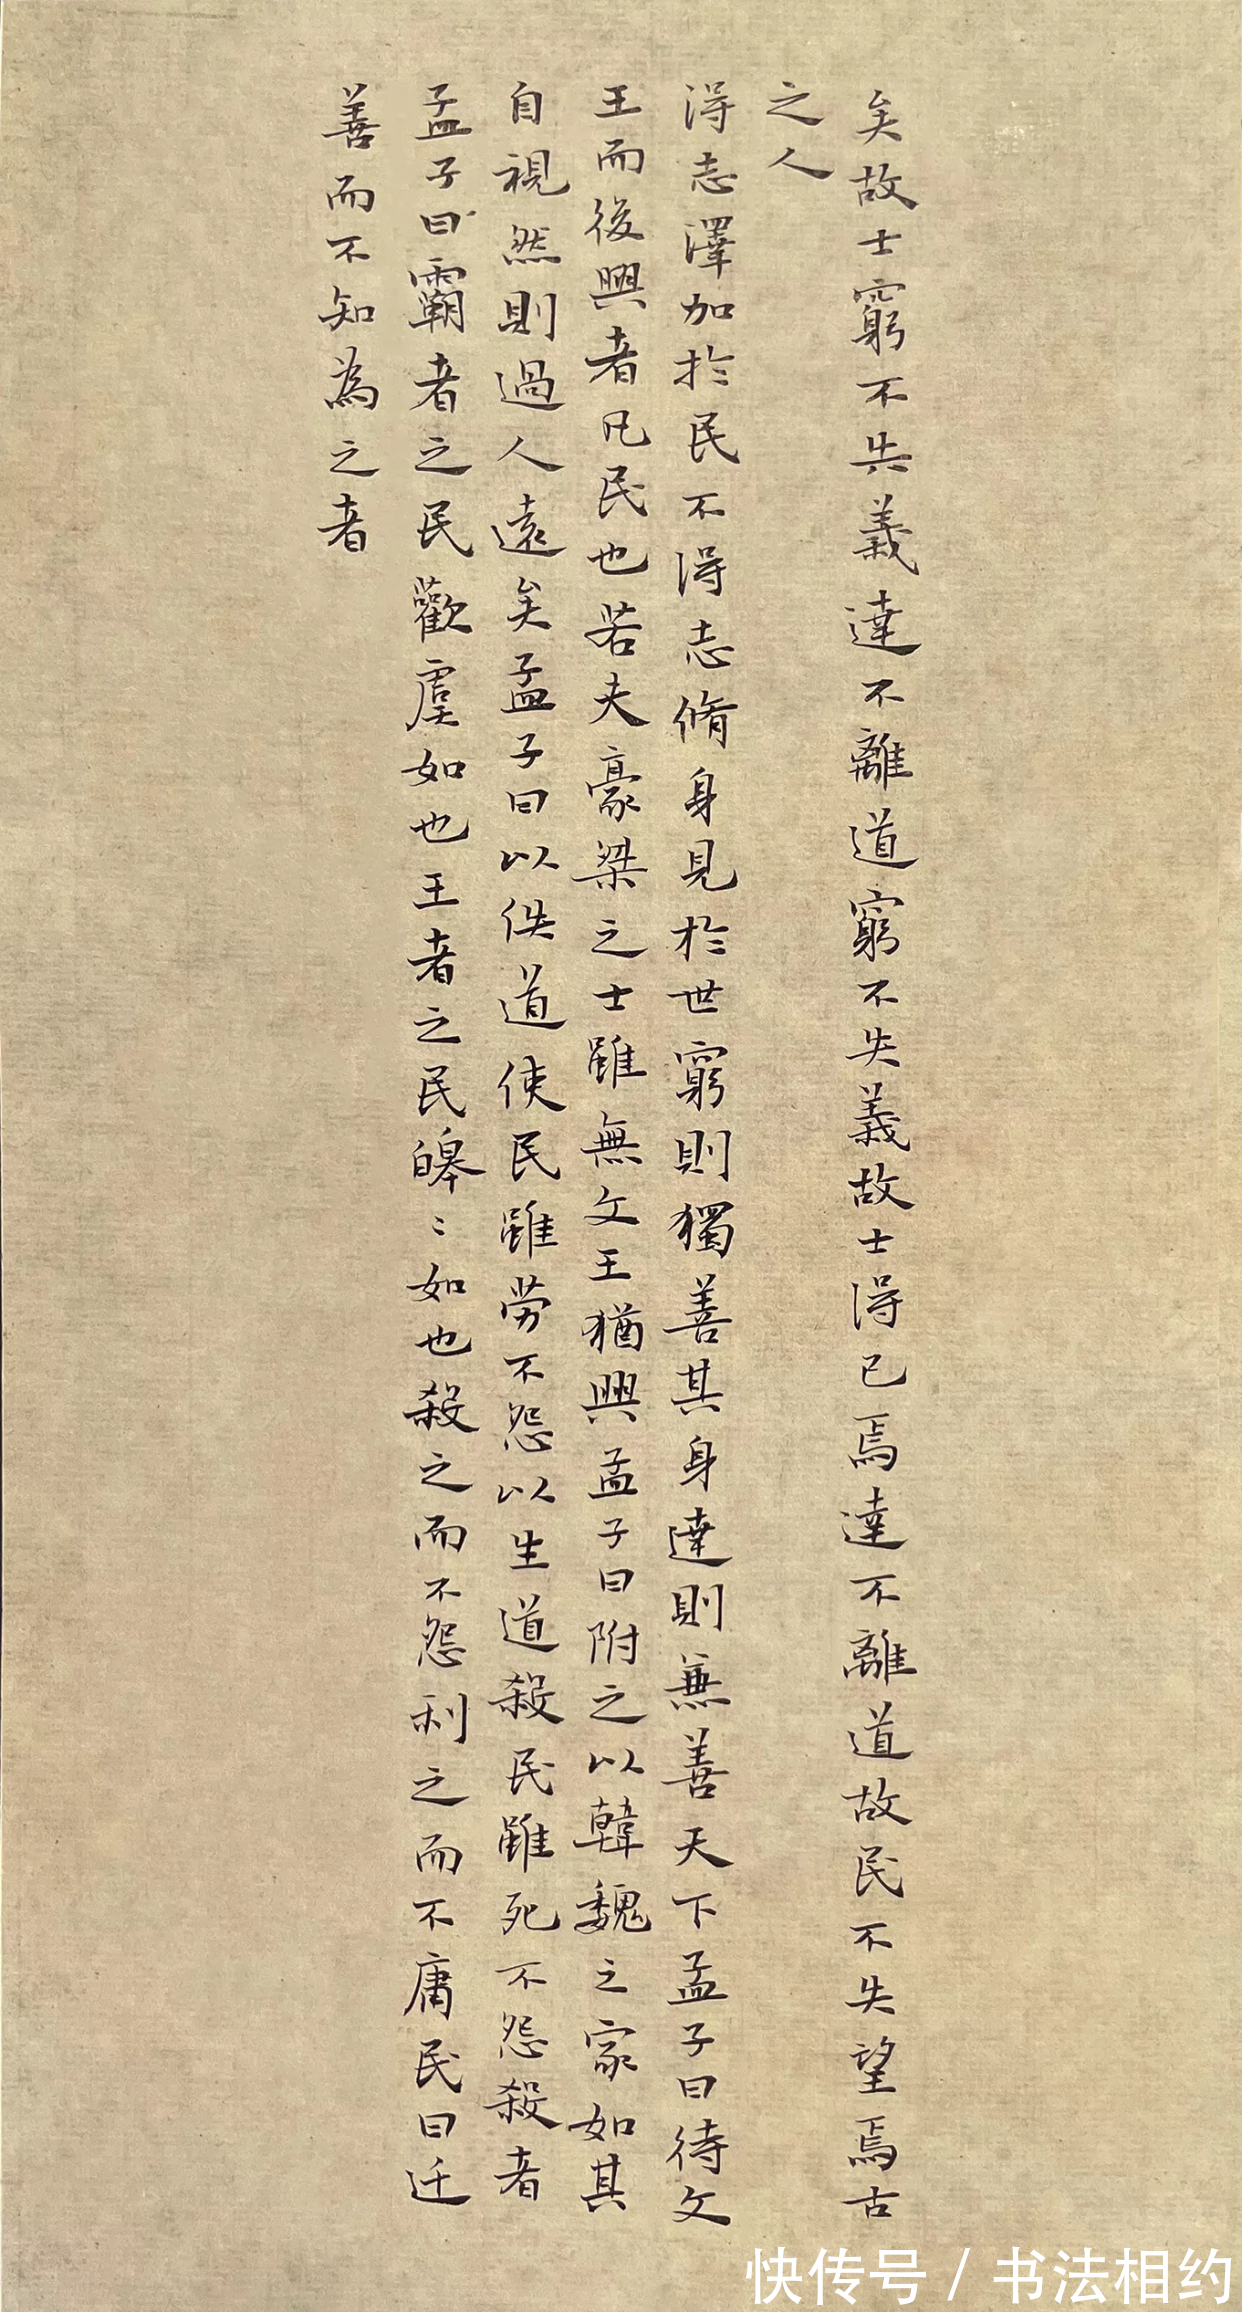 矣故士窮不失義達不離道窮不失義故士得己焉達不離道故民不失望焉古
之人
得志澤加於民不得志脩身見於世窮則獨善其身達則兼善天下孟子曰待文
王而後興者凡民也若夫豪桀之士雖無文王猶興孟子曰附之以韓魏之家如其
自視然則過人遠矣孟子曰以佚道使民雖勞不怨以生道殺民雖死不怨殺者
孟子曰霸者之民歡虞如也王者之民皞〻如也殺之而不怨利之而不庸民曰迁
善而不知為之者
快传号 / 书法相约